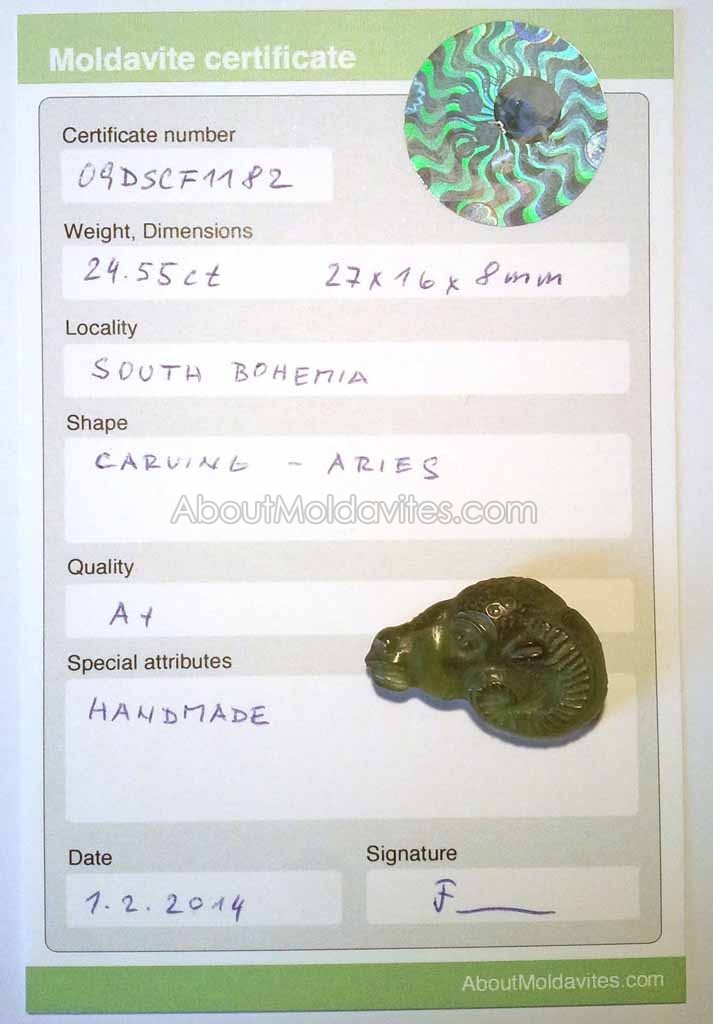 Moldavite certificate
Certificate number
09DSCF1182
Weight, Dimensions
24.55ct 27x16x8mm
Locality
SOUTH BOHEMIA
Shape
CARVING - ARIES
AboutMoldavites.com
Quality
A+
Special attributes
HANDMADE
Date Signature
1.2.2014
AboutMoldavites.com